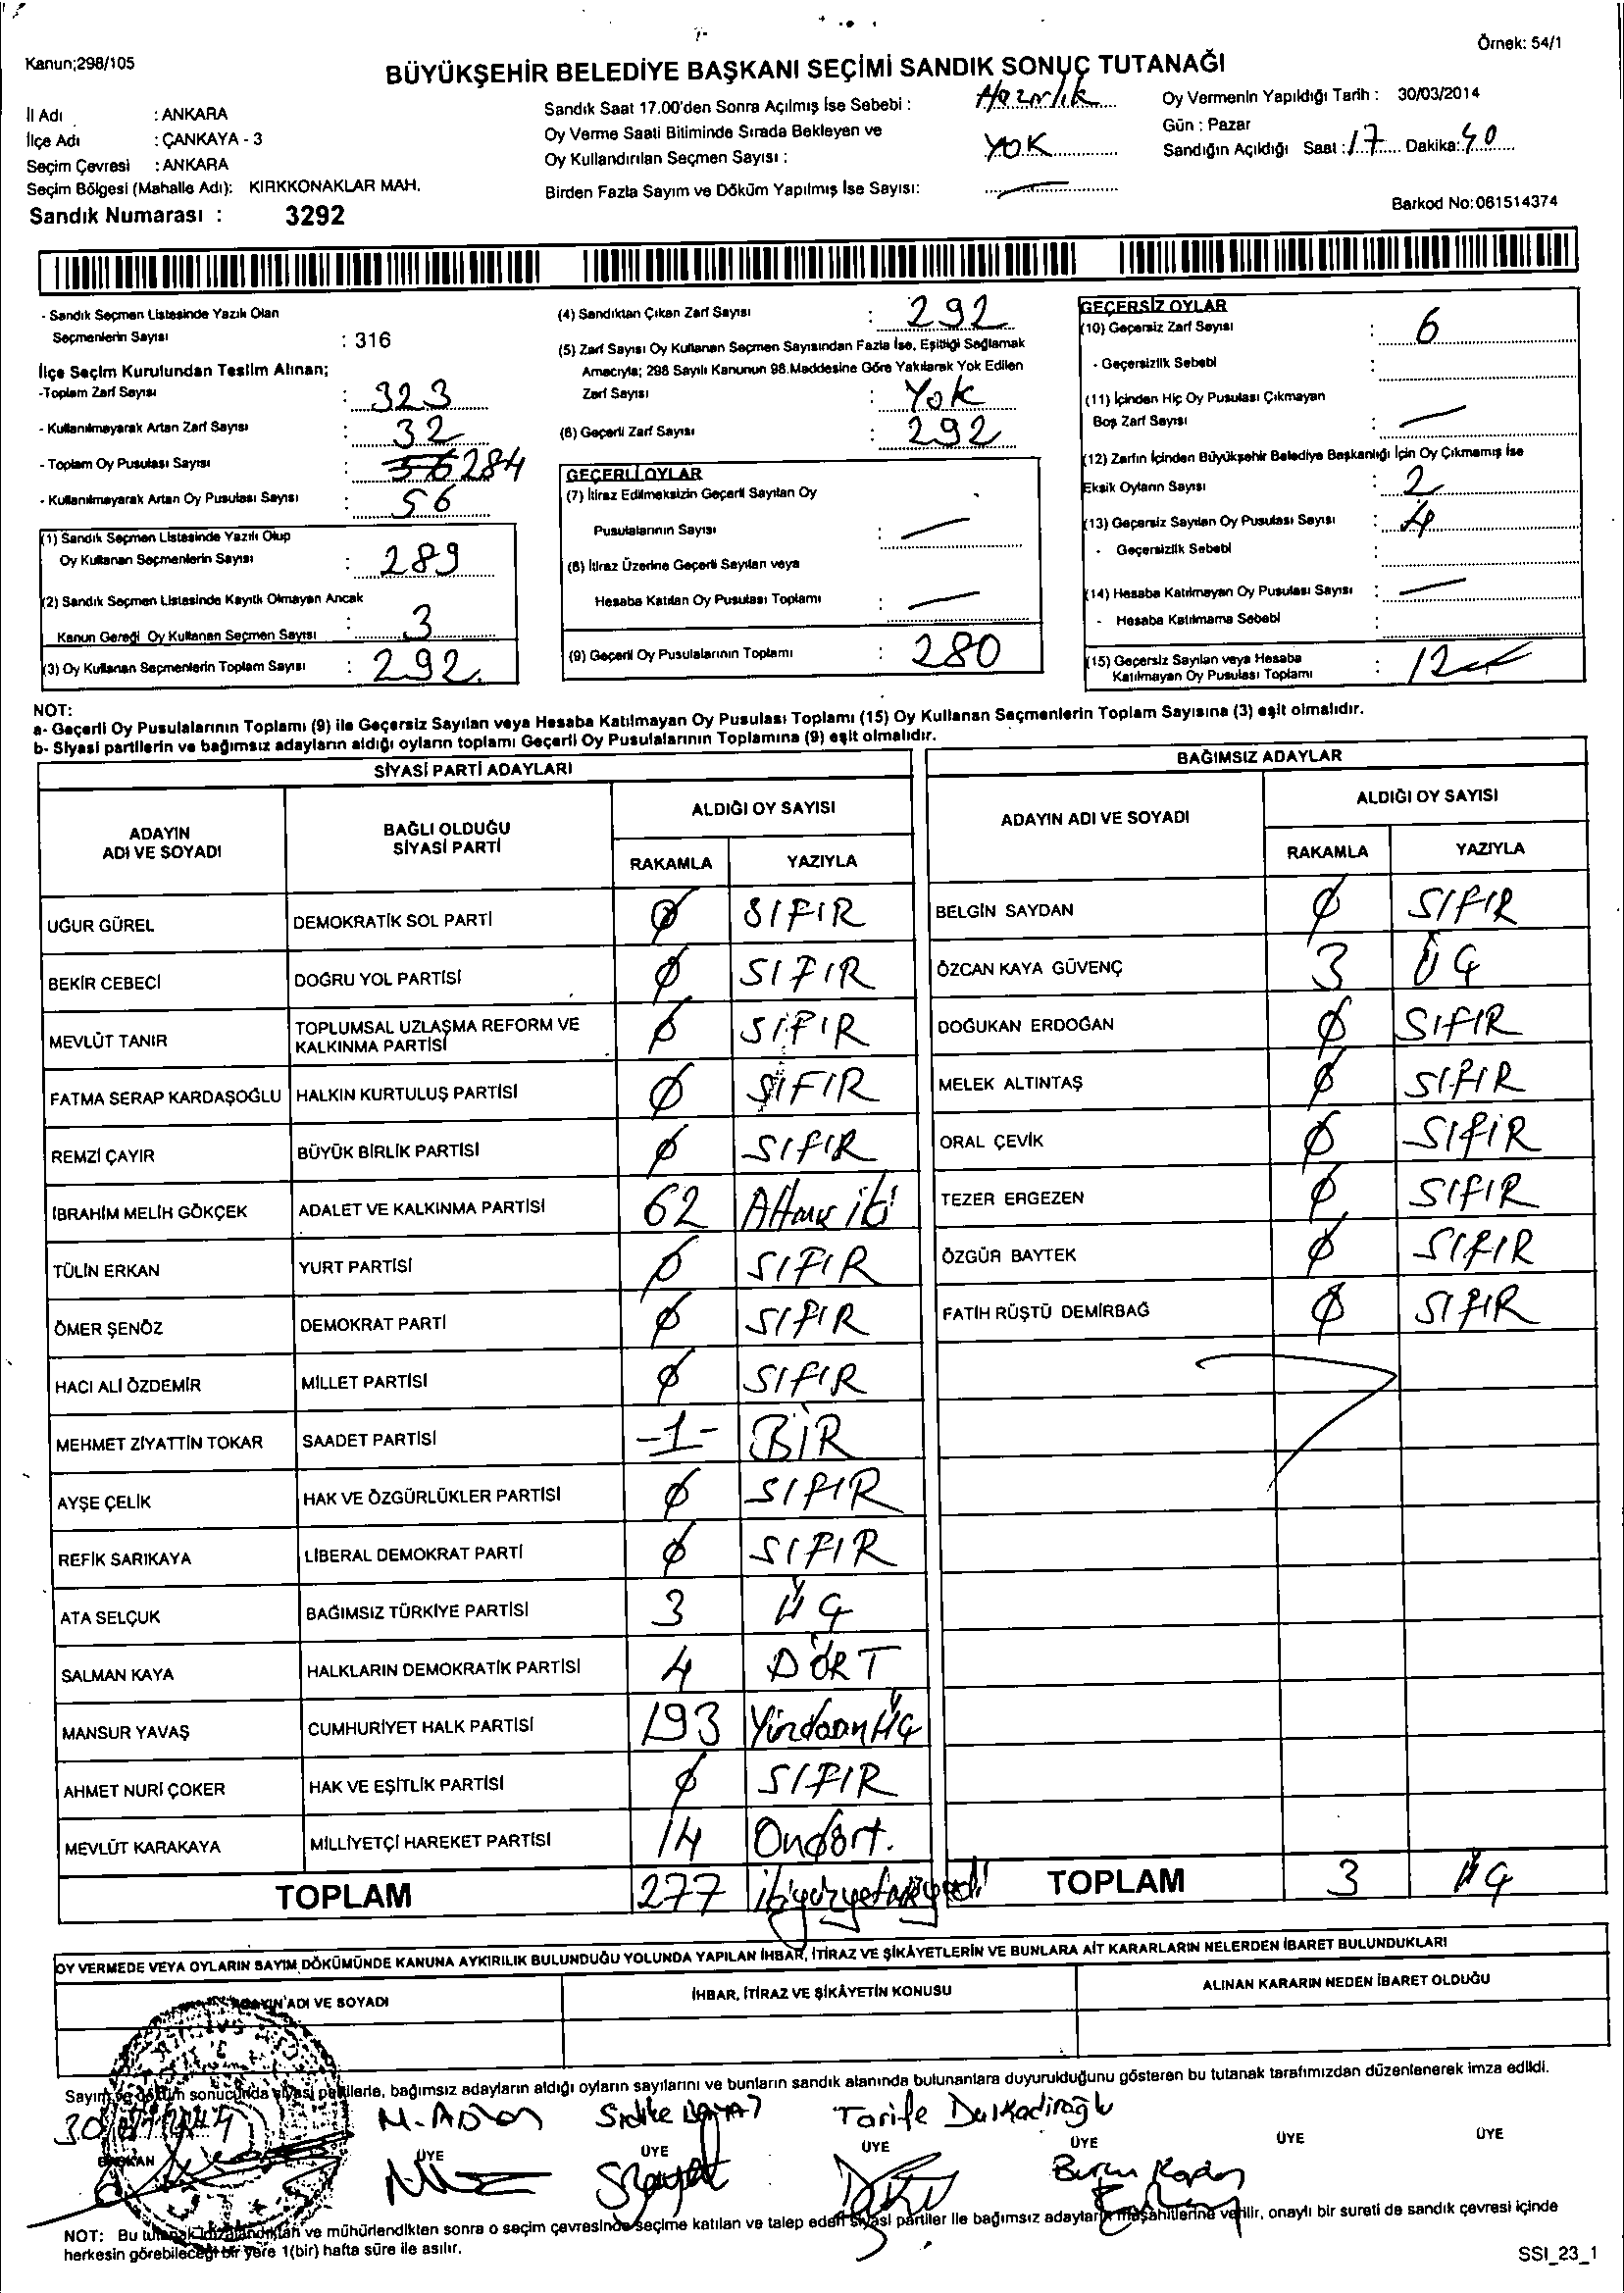 Örnek: 54/1
Kanun;298/105
BÜYÜKŞEHİR BELEDİYE BAŞKANI SEÇİMİ SANDIK SONUÇ TUTANAĞI
İl Adı : ANKARA
İlçe Adı : ÇANKAYA - 3
Seçim Çevresi : ANKARA
Seçim Bölgesi (Mahalle Adı): KIRKKONAKLAR MAH.
Sandık Numarası : 3292
Sandık Saat 17.00'den Sonra Açılmış İse Sebebi : Hazırlık
Oy Verme Saati Bitiminde Sırada Bekleyen ve
Oy Kullandırılan Seçmen Sayısı : YOK
Birden Fazla Sayım ve Döküm Yapılmış İse Sayısı: —
Oy Vermenin Yapıldığı Tarih : 30/03/2014
Gün : Pazar
Sandığın Açıldığı Saat : 17 Dakika: 40
Barkod No:061514374
- Sandık Seçmen Listesinde Yazılı Olan
Seçmenlerin Sayısı : 316
İlçe Seçim Kurulundan Teslim Alınan;
-Toplam Zarf Sayısı : 323
- Kullanılmayarak Artan Zarf Sayısı : 32
- Toplam Oy Pusulası Sayısı : 284
- Kullanılmayarak Artan Oy Pusulası Sayısı : 56
(1) Sandık Seçmen Listesinde Yazılı Olup
Oy Kullanan Seçmenlerin Sayısı : 289
(2) Sandık Seçmen Listesinde Kayıtlı Olmayan Ancak
Kanun Gereği Oy Kullanan Seçmen Sayısı : 3
(3) Oy Kullanan Seçmenlerin Toplam Sayısı : 292.
(4) Sandıktan Çıkan Zarf Sayısı : 292
(5) Zarf Sayısı Oy Kullanan Seçmen Sayısından Fazla İse, Eşitliği Sağlamak
Amacıyla; 298 Sayılı Kanunun 98.Maddesine Göre Yakılarak Yok Edilen
Zarf Sayısı : Yok
(6) Geçerli Zarf Sayısı : 292
GEÇERLİ OYLAR
(7) İtiraz Edilmeksizin Geçerli Sayılan Oy
Pusulalarının Sayısı : —
(8) İtiraz Üzerine Geçerli Sayılan veya
Hesaba Katılan Oy Pusulası Toplamı : —
(9) Geçerli Oy Pusulalarının Toplamı : 280
GEÇERSİZ OYLAR
(10) Geçersiz Zarf Sayısı : 6
- Geçersizlik Sebebi :
(11) İçinden Hiç Oy Pusulası Çıkmayan
Boş Zarf Sayısı : —
(12) Zarfın İçinden Büyükşehir Belediye Başkanlığı İçin Oy Çıkmamış İse
Eksik Oyların Sayısı : 2
(13) Geçersiz Sayılan Oy Pusulası Sayısı : 4
- Geçersizlik Sebebi :
(14) Hesaba Katılmayan Oy Pusulası Sayısı : —
- Hesaba Katılmama Sebebi :
(15) Geçersiz Sayılan veya Hesaba
Katılmayan Oy Pusulası Toplamı : 12
NOT:
a- Geçerli Oy Pusulalarının Toplamı (9) ile Geçersiz Sayılan veya Hesaba Katılmayan Oy Pusulası Toplamı (15) Oy Kullanan Seçmenlerin Toplam Sayısına (3) eşit olmalıdır.
b- Siyasi partilerin ve bağımsız adayların aldığı oyların toplamı Geçerli Oy Pusulalarının Toplamına (9) eşit olmalıdır.
SİYASİ PARTİ ADAYLARI
ADAYIN ADI VE SOYADI BAĞLI OLDUĞU SİYASİ PARTİ ALDIĞI OY SAYISI
RAKAMLA YAZIYLA
UĞUR GÜREL DEMOKRATİK SOL PARTİ 0 SIFIR
BEKİR CEBECİ DOĞRU YOL PARTİSİ 0 SIFIR
MEVLÜT TANIR TOPLUMSAL UZLAŞMA REFORM VE KALKINMA PARTİSİ 0 SIFIR
FATMA SERAP KARDAŞOĞLU HALKIN KURTULUŞ PARTİSİ 0 SIFIR
REMZİ ÇAYIR BÜYÜK BİRLİK PARTİSİ 0 SIFIR
İBRAHİM MELİH GÖKÇEK ADALET VE KALKINMA PARTİSİ 62 Altmış iki
TÜLİN ERKAN YURT PARTİSİ 0 SIFIR
ÖMER ŞENÖZ DEMOKRAT PARTİ 0 SIFIR
HACI ALİ ÖZDEMİR MİLLET PARTİSİ 0 SIFIR
MEHMET ZİYATTİN TOKAR SAADET PARTİSİ -1- BİR
AYŞE ÇELİK HAK VE ÖZGÜRLÜKLER PARTİSİ 0 SIFIR
REFİK SARIKAYA LİBERAL DEMOKRAT PARTİ 0 SIFIR
ATA SELÇUK BAĞIMSIZ TÜRKİYE PARTİSİ 3 ÜÇ
SALMAN KAYA HALKLARIN DEMOKRATİK PARTİSİ 4 DÖRT
MANSUR YAVAŞ CUMHURİYET HALK PARTİSİ 193
AHMET NURİ ÇOKER HAK VE EŞİTLİK PARTİSİ 0 SIFIR
MEVLÜT KARAKAYA MİLLİYETÇİ HAREKET PARTİSİ 14 Ondört.
TOPLAM 277 ikiyüzyetmişyedi
BAĞIMSIZ ADAYLAR
ADAYIN ADI VE SOYADI ALDIĞI OY SAYISI
RAKAMLA YAZIYLA
BELGİN SAYDAN 0 SIFIR
ÖZCAN KAYA GÜVENÇ 3 ÜÇ
DOĞUKAN ERDOĞAN 0 SIFIR
MELEK ALTINTAŞ 0 SIFIR
ORAL ÇEVİK 0 SIFIR
TEZER ERGEZEN 0 SIFIR
ÖZGÜR BAYTEK 0 SIFIR
FATİH RÜŞTÜ DEMİRBAĞ 0 SIFIR
TOPLAM 3 ÜÇ
OY VERMEDE VEYA OYLARIN SAYIM DÖKÜMÜNDE KANUNA AYKIRILIK BULUNDUĞU YOLUNDA YAPILAN İHBAR, İTİRAZ VE ŞİKÂYETLERİN VE BUNLARA AİT KARARLARIN NELERDEN İBARET BULUNDUKLARI
ADI VE SOYADI İHBAR, İTİRAZ VE ŞİKÂYETİN KONUSU ALINAN KARARIN NEDEN İBARET OLDUĞU
Sayım ve döküm sonucunda siyasi partilerle, bağımsız adayların aldığı oyların sayılarını ve bunların sandık alanında bulunanlara duyurulduğunu gösteren bu tutanak tarafımızdan düzenlenerek imza edildi.
Tarife Dulkadiroğlu
BAŞKAN ÜYE ÜYE ÜYE ÜYE ÜYE ÜYE
NOT: Bu tutanak imzalandıktan ve mühürlendikten sonra o seçim çevresinde seçime katılan ve talep eden siyasi partiler ile bağımsız adayların müşahitlerine verilir, onaylı bir sureti de sandık çevresi içinde
herkesin görebileceği bir yere 1(bir) hafta süre ile asılır.
SSI_23_1